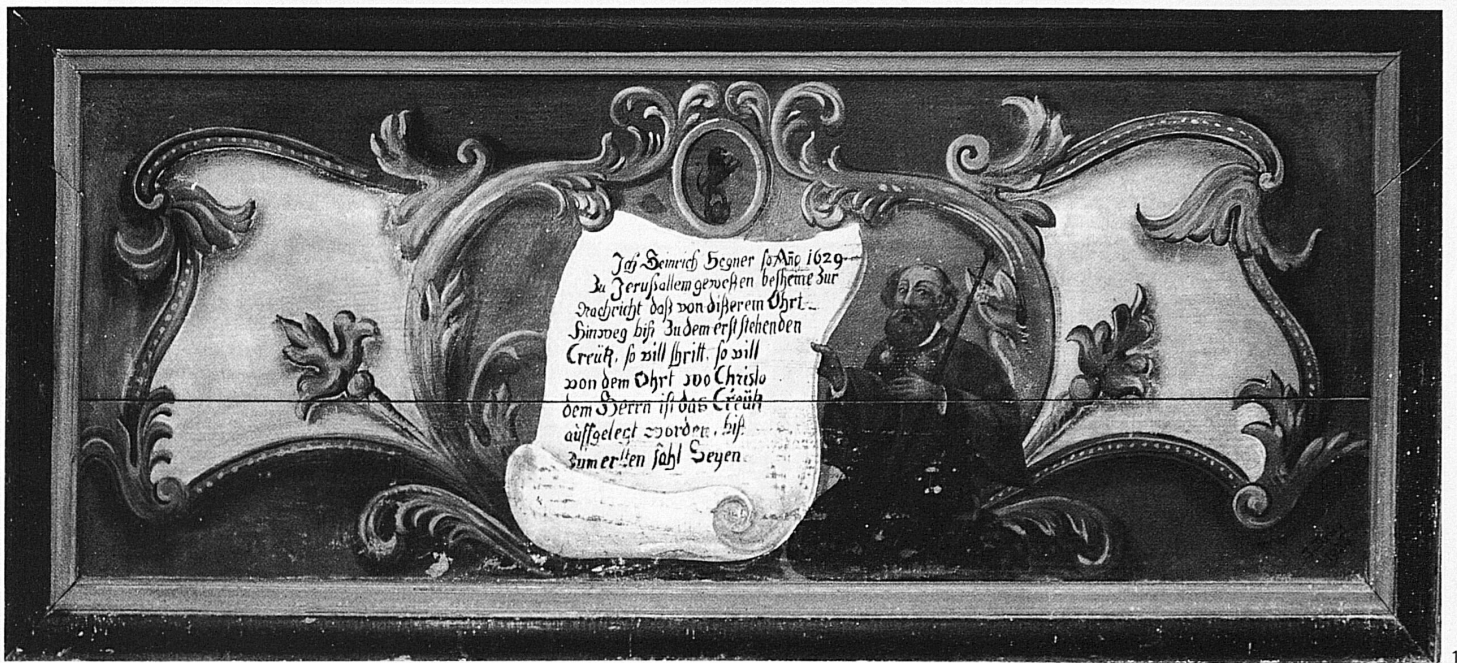 Ich Heinrich Hegner so Año 1629
Zu Jerusallem gewesten bescheine zur
Nachricht daß von dißerem Ohrt
hinweg biß Zu dem erst stehenden
Creütz, so vill schritt, so vill
von dem Ohrt wo Christo
dem Herrn ist das Creütz
aüffgelegt worden, biß
Zum ersten fahl Seyen
1